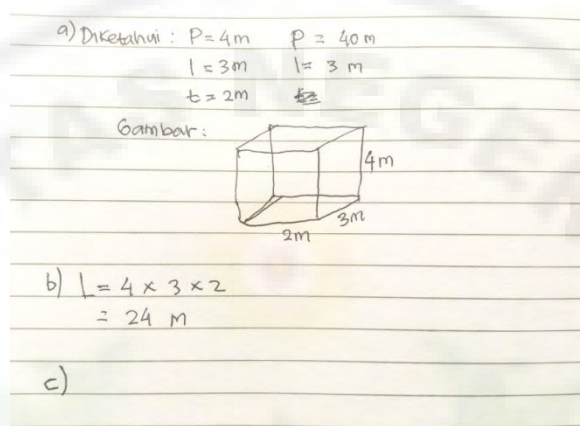 a) Diketahui : P = 4 m P = 40 m
l = 3 m l = 3 m
t = 2 m
Gambar :
4 m
3 m
2 m
b) L = 4 × 3 × 2
= 24 m
c)